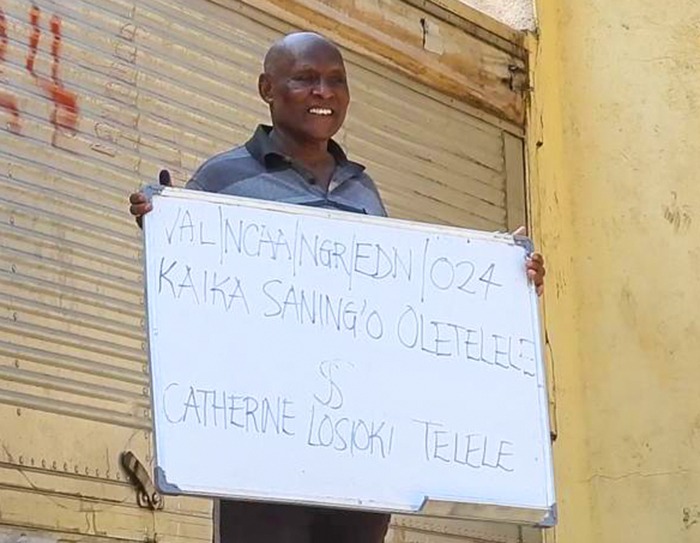 VAL/NCAA/NGR/EDN/024
KAIKA SANING'O OLETELELE
&
CATHERINE LOSIOKI TELELE